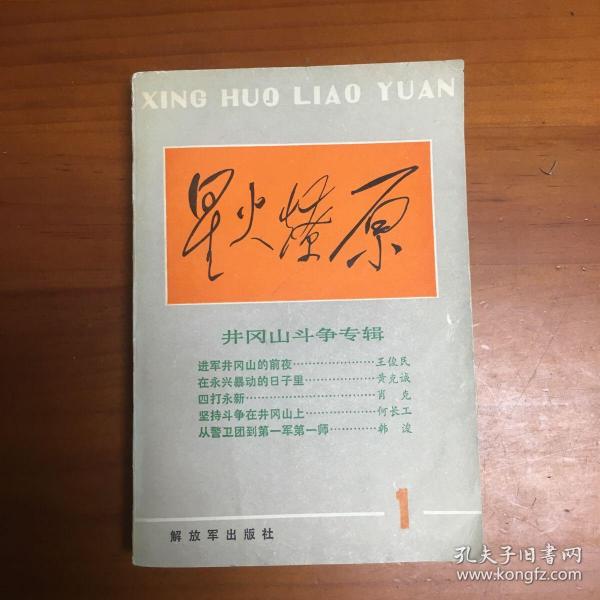 XING HUO LIAO YUAN
星火燎原
井冈山斗争专辑
进军井冈山的前夜……………………王俊民
在永兴暴动的日子里…………………黄克诚
四打永新………………………………肖 克
坚持斗争在井冈山上…………………何长工
从警卫团到第一军第一师…………韩 浚
1
解放军出版社
孔夫子旧书网
www.kongfz.com